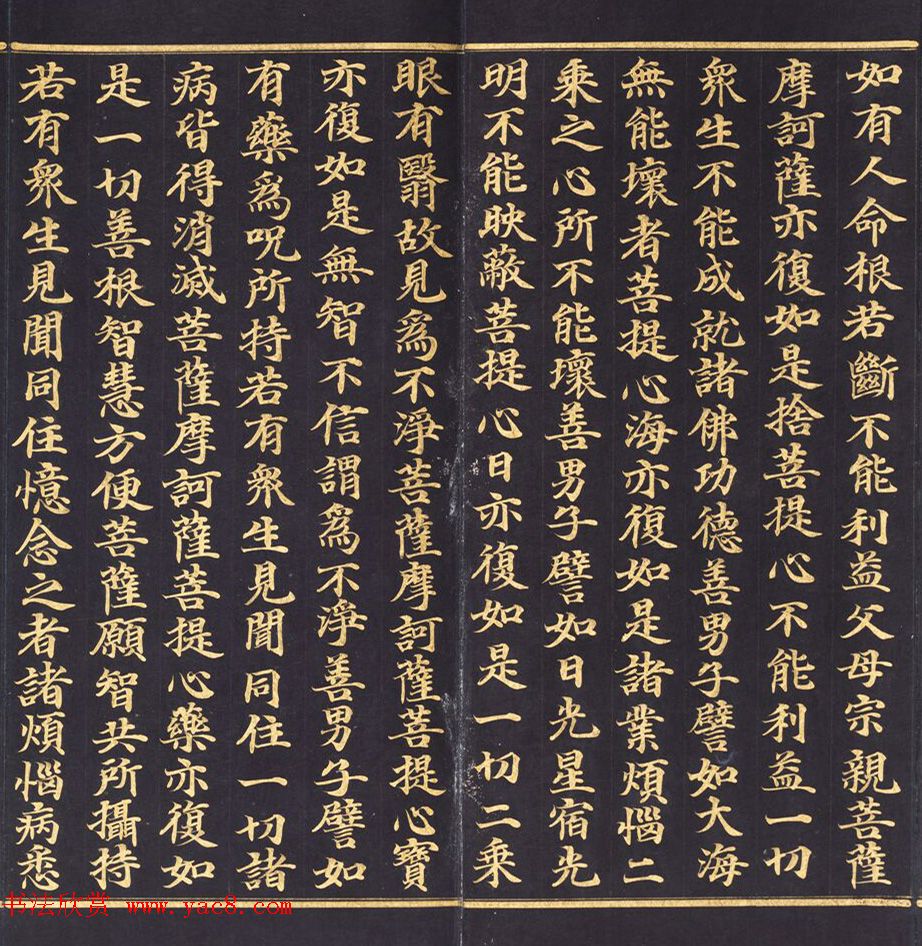 如有人命根若斷不能利益父母宗親菩薩
摩訶薩亦復如是捨菩提心不能利益一切
衆生不能成就諸佛功德善男子譬如大海
無能壞者菩提心海亦復如是諸業煩惱二
乘之心所不能壞善男子譬如日光星宿光
明不能映蔽菩提心日亦復如是一切二乘
眼有翳故見爲不淨菩薩摩訶薩菩提心寶
亦復如是無智不信謂爲不淨善男子譬如
有藥爲呪所持若有衆生見聞同住一切諸
病皆得消滅菩薩摩訶薩菩提心藥亦復如
是一切善根智慧方便菩薩願智共所攝持
若有衆生見聞同住憶念之者諸煩惱病悉
书法欣赏 www.yac8.com